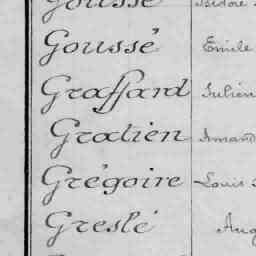 Gousse Isidore
Goussé Emile
Graffard Julien
Gratien Amand
Grégoire Louis
Greslé Aug